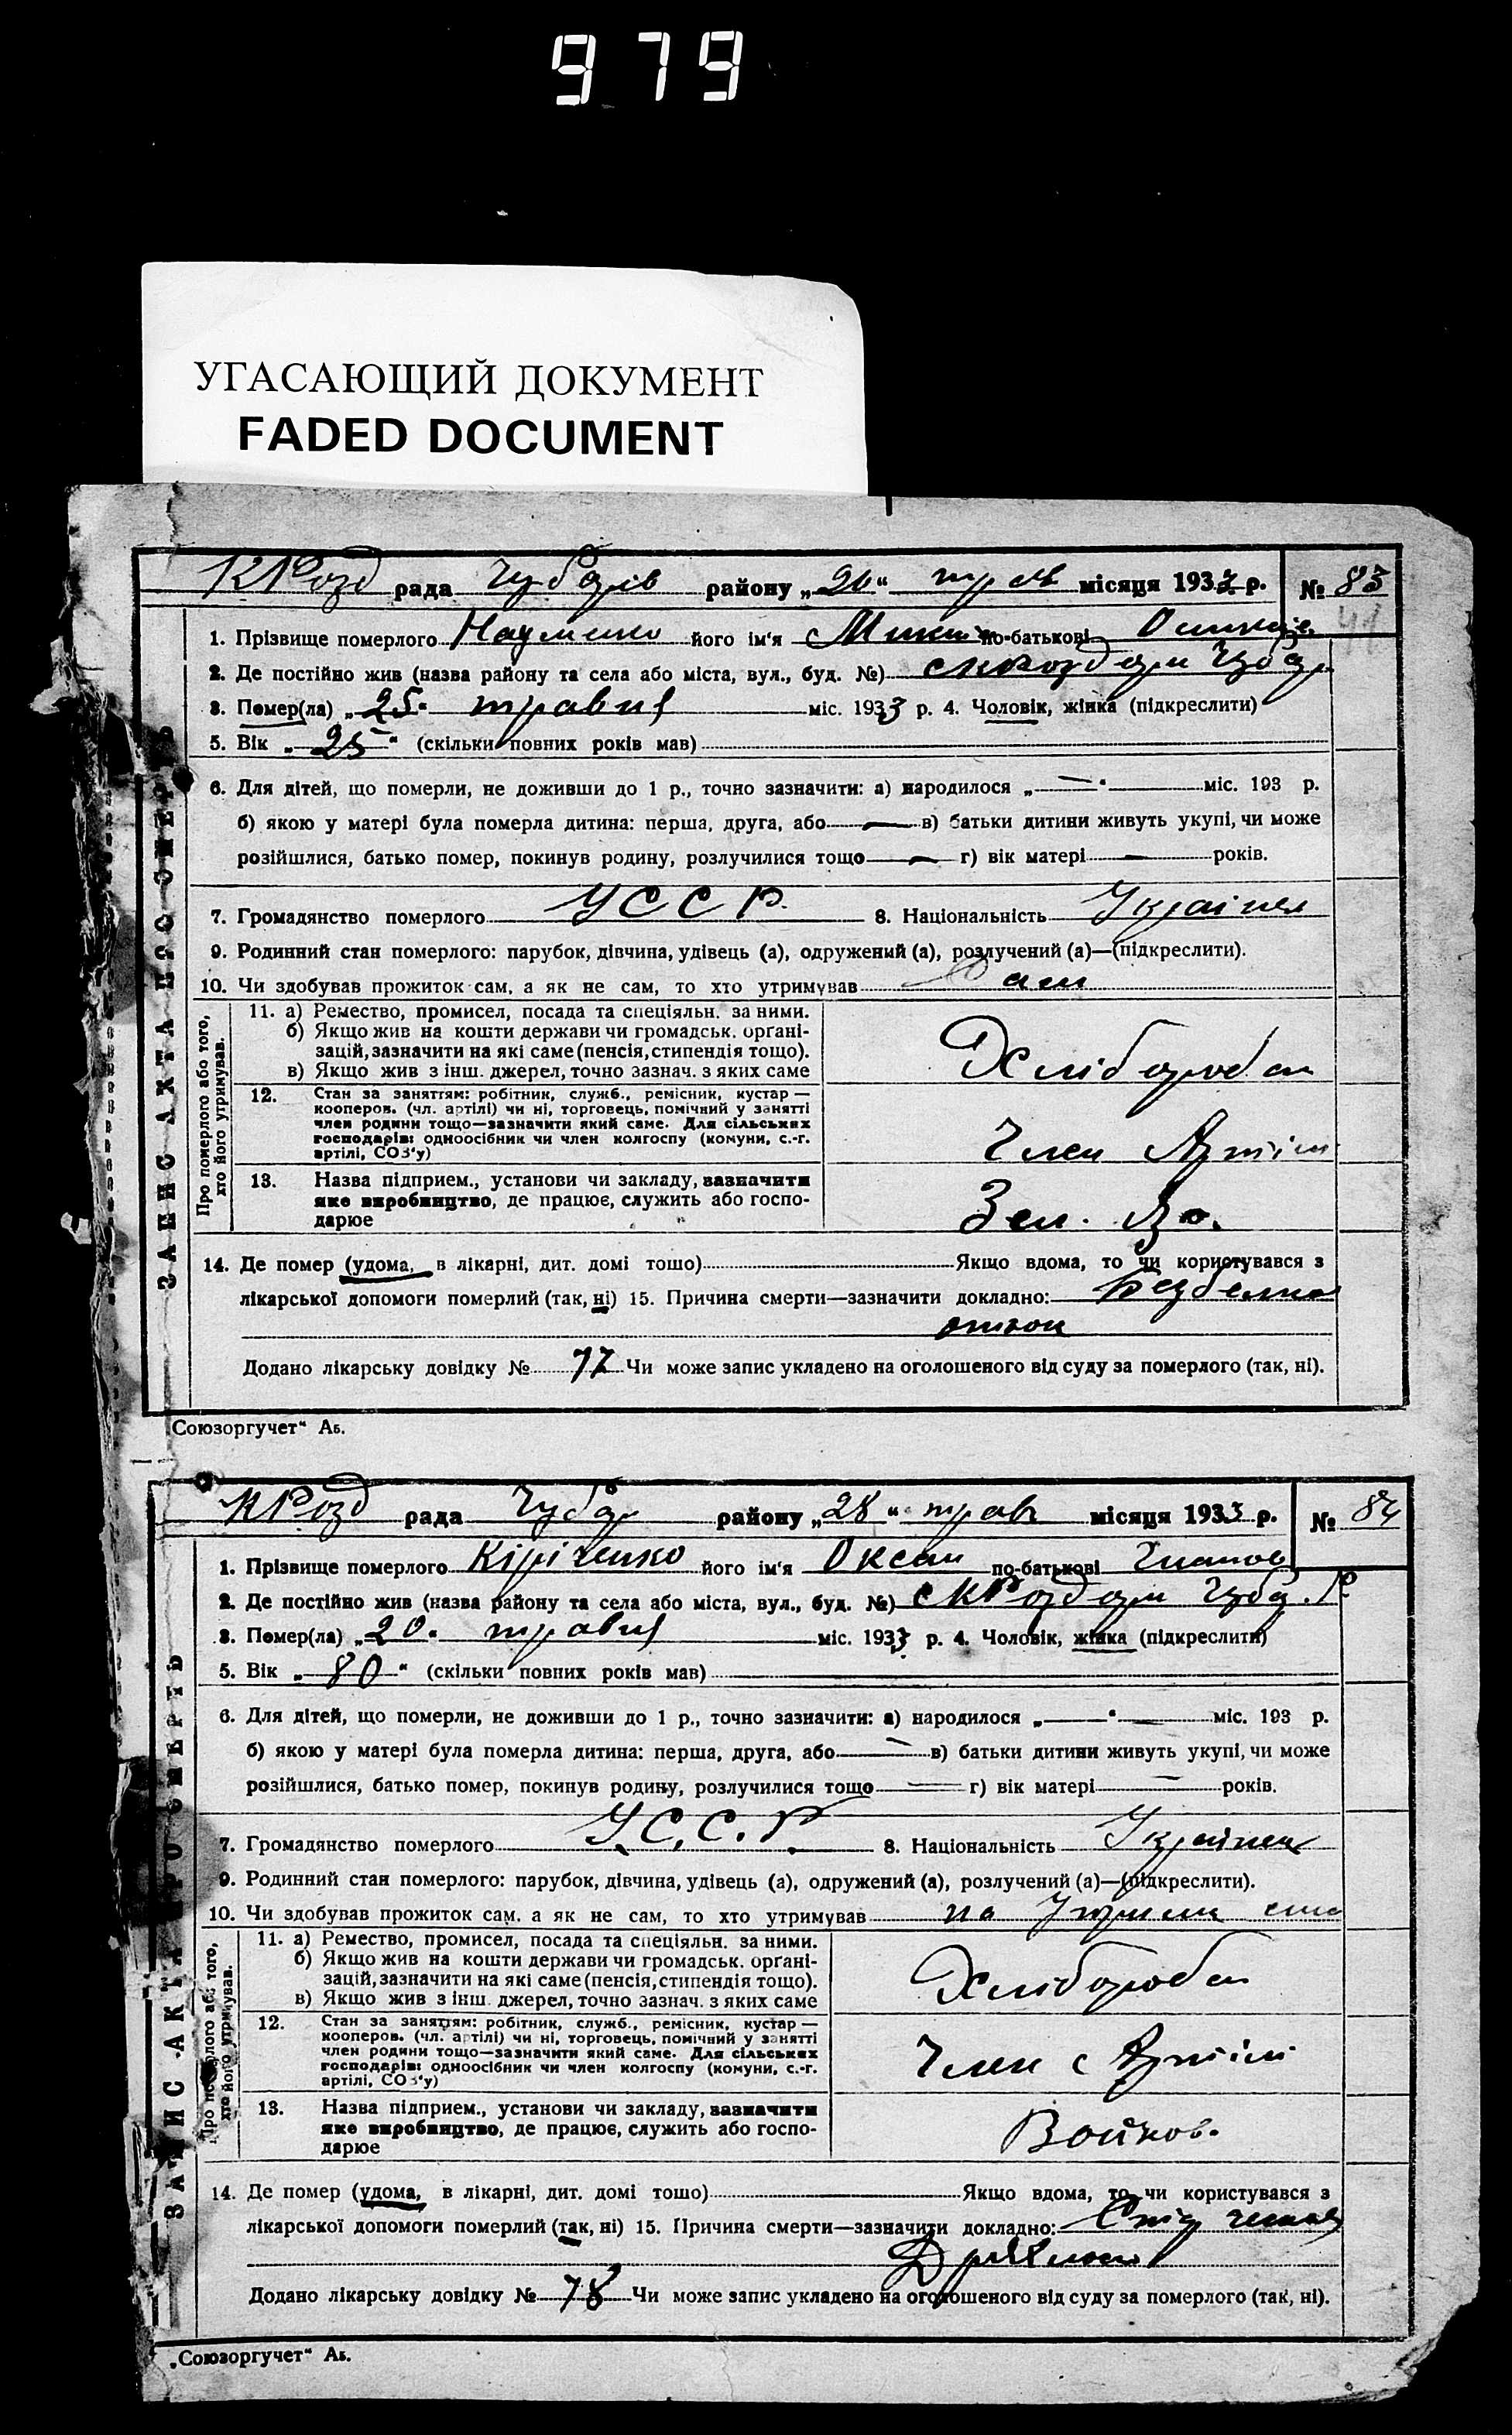 979
УГАСАЮЩИЙ ДОКУМЕНТ
FADED DOCUMENT
ЗАПИС АКТА ПРО СМЕРТЬ
КРозд рада Чубарів району „26“ трав місяця 1933 р. № 83
41
1. Прізвище померлого Науменко його ім'я Мики по-батькові
2. Де постійно жив (назва району та села або міста, вул., буд. №)
3. Помер(ла) „25. травня міс. 1933 р. 4. Чоловік, жінка (підкреслити)
5. Вік „25“ (скільки повних років мав)
6. Для дітей, що померли, не доживши до 1 р., точно зазначити: а) народилося „—“ міс. 193 р.
б) якою у матері була померла дитина: перша, друга, або — в) батьки дитини живуть укупі, чи може
розійшлися, батько помер, покинув родину, розлучилися тощо — г) вік матері — років.
7. Громадянство померлого УССР. 8. Національність Українец
9. Родинний стан померлого: парубок, дівчина, удівець (а), одружений (а), розлучений (а)—(підкреслити).
10. Чи здобував прожиток сам, а як не сам, то хто утримував Сам
Про померлого або того, хто його утримував.
11. а) Ремество, промисел, посада та спеціяльн. за ними.
б) Якщо жив на кошти держави чи громадськ. орґані-
зацій, зазначити на які саме (пенсія, стипендія тощо).
в) Якщо жив з інш. джерел, точно зазнач. з яких саме
Хлібороб
12. Стан за заняттям: робітник, служб., ремісник, кустар—
кооперов. (чл. артілі) чи ні, торговець, помічний у занятті
член родини тощо—зазначити який саме. Для сільських
господарів: одноосібник чи член колгоспу (комуни, с.-г.
артілі, СОЗ'у)
Член Артіли
13. Назва підприєм., установи чи закладу, зазначити
яке виробництво, де працює, служить або госпо-
дарює
Зел.
14. Де помер (удома, в лікарні, дит. домі тощо) Якщо вдома, то чи користувався з
лікарської допомоги померлий (так, ні) 15. Причина смерти—зазначити докладно:
Додано лікарську довідку № 77 Чи може запис укладено на оголошеного від суду за померлого (так, ні).
„Союзоргучет“ Аб.
ЗАПИС АКТА ПРО СМЕРТЬ
КРозд рада Чубар району „28“ трав місяця 1933 р. № 84
1. Прізвище померлого Кіріченко його ім'я Оксан по-батькові
2. Де постійно жив (назва району та села або міста, вул., буд. №)
3. Помер(ла) „20. травня міс. 1933 р. 4. Чоловік, жінка (підкреслити)
5. Вік „80“ (скільки повних років мав)
6. Для дітей, що померли, не доживши до 1 р., точно зазначити: а) народилося „—“ міс. 193 р.
б) якою у матері була померла дитина: перша, друга, або — в) батьки дитини живуть укупі, чи може
розійшлися, батько помер, покинув родину, розлучилися тощо — г) вік матері — років.
7. Громадянство померлого У.С.С.Р 8. Національність Українец
9. Родинний стан померлого: парубок, дівчина, удівець (а), одружений (а), розлучений (а)—(підкреслити).
10. Чи здобував прожиток сам, а як не сам, то хто утримував на
Про померлого або того, хто його утримував.
11. а) Ремество, промисел, посада та спеціяльн. за ними.
б) Якщо жив на кошти держави чи громадськ. орґані-
зацій, зазначити на які саме (пенсія, стипендія тощо).
в) Якщо жив з інш. джерел, точно зазнач. з яких саме
Хлібороб
12. Стан за заняттям: робітник, служб., ремісник, кустар—
кооперов. (чл. артілі) чи ні, торговець, помічний у занятті
член родини тощо—зазначити який саме. Для сільських
господарів: одноосібник чи член колгоспу (комуни, с.-г.
артілі, СОЗ'у)
Член с Артіли
13. Назва підприєм., установи чи закладу, зазначити
яке виробництво, де працює, служить або госпо-
дарює
Войков.
14. Де помер (удома, в лікарні, дит. домі тощо) Якщо вдома, то чи користувався з
лікарської допомоги померлий (так, ні) 15. Причина смерти—зазначити докладно:
Додано лікарську довідку № 78 Чи може запис укладено на оголошеного від суду за померлого (так, ні).
„Союзоргучет“ Аб.